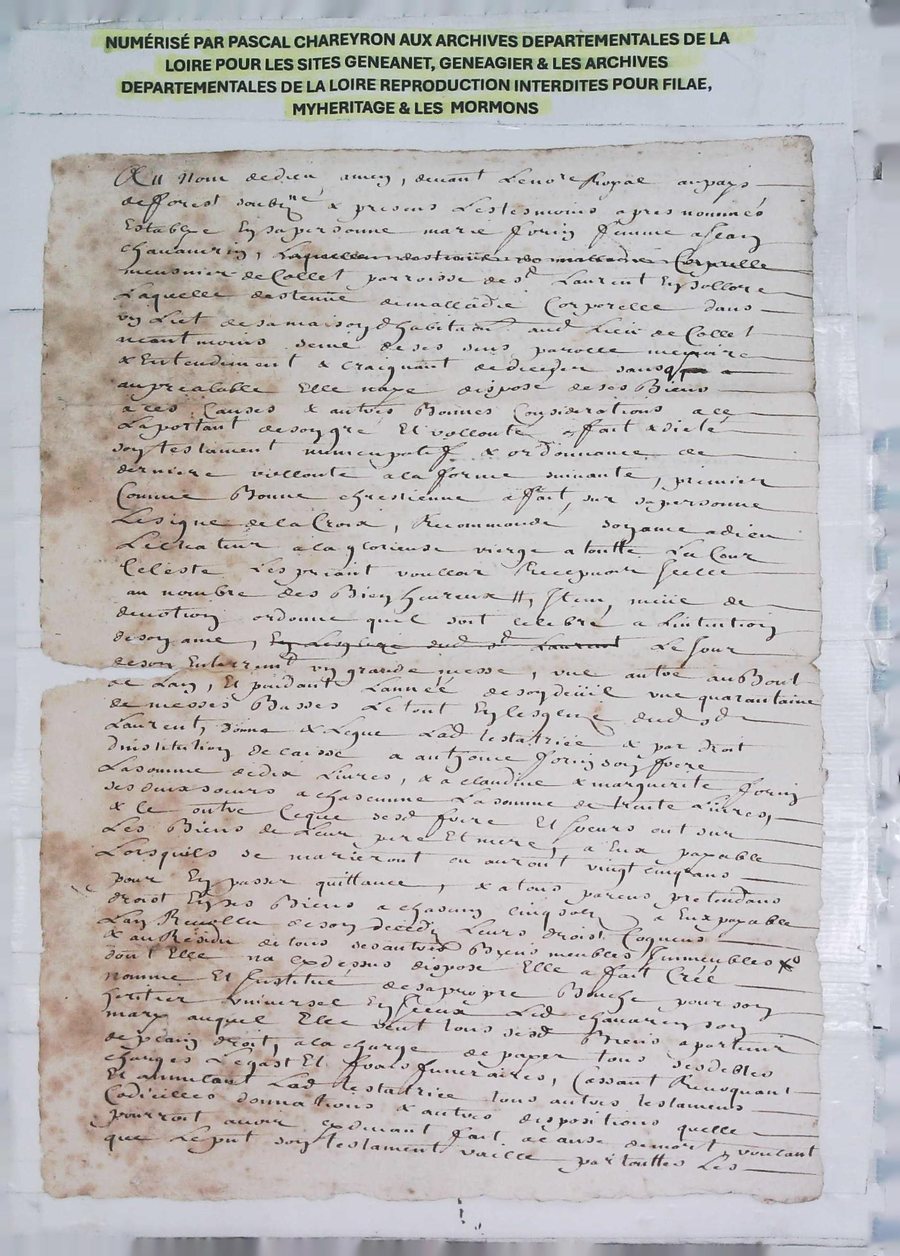 NUMÉRISÉ PAR PASCAL CHAREYRON AUX ARCHIVES DEPARTEMENTALES DE LA
LOIRE POUR LES SITES GENEANET, GENEAGIER & LES ARCHIVES
DEPARTEMENTALES DE LA LOIRE REPRODUCTION INTERDITES POUR FILAE,
MYHERITAGE & LES MORMONS
Au Nom de dieu amen, devant Le no.re Royal au pays
de fforest soub.né & presens Les tesmoins apres nommés
Establie En sa personne marie femme a Jean
Laquelle destenue de malladie Corporelle
meusnier de Collet parroisse de s.t Laurent
Laquelle destenue de malladie Corporelle dans
un Lict de sa maison d'habita.on aud. Lieu de Collet
neantmoins seine de ses sens parolle memoire
& Entendement & craignant de deceder sans
au prealable Elle naye dispose de ses Biens
a ces Causes & autres Bonnes Considerations a ce
La portant de son gré Et vollonté a fait & dicté
son testament nuncupatif & ordonnance de
derniere vollonté a la forme suivante, premier
Comme Bonne chrestienne a fait sur sa personne
Le signe de la Croix, Recommandé son ame a dieu
Le createur a la glorieuse vierge a toutte La Cour
Celeste Les priant voulloir Recepvoir Icelle
au nombre des Bien heureux, Item, meüe de
devotion ordonne quil soit celebré a Lintention
de son ame, En Lesglize dud. s.t Laurent Le Jour
de son Enterrem.t un grande messe, une autre au Bout
de Lan, Et pendant Lannéé de son deüil une quarantaine
de messes Basses Le tout En Lesglize dud. s.t
Laurent, donne & Legue Lad. testatrice & par droit
dinstitution delaisse a anthoine son frere
La somme de dix Livres, & a claudine & marguerite
ses deux soeurs a chascunne La somme de trente Livres,
& ce outre Ceque sesd. frere Et soeurs ont sur
Les Biens de Leur pere Et mere, a Eux payable
Lorsquils se marieront ou auront vingt cinq ans
pour En passer quittance, & a tous parens pretendans
droict En ses Biens a chascun cinq solz a Eux payable
Lan Revollu de son decedz Leurs droict Cogneus
& au Residu de tous ses autres Biens meubles Immeubles &
dont Elle na cy dessus dispose Elle a fait Créé
nommé Et Institué de sa propre Bouche pour son
heritier universel Led. son
mary auquel Elle veut tous sesd. Biens apartenir
de plain droit, a la charge de payer tous ses debtes
charges Legast Et frais funeraires, Cassant Revoquant
Et annullant Lad. testatrice tous autres testaments
Codicilles donnations & autres dispositions quelle
pourroit avoir cy devant fait a cause de mort, voulant
que Le pnt son testament vaille par touttes Les